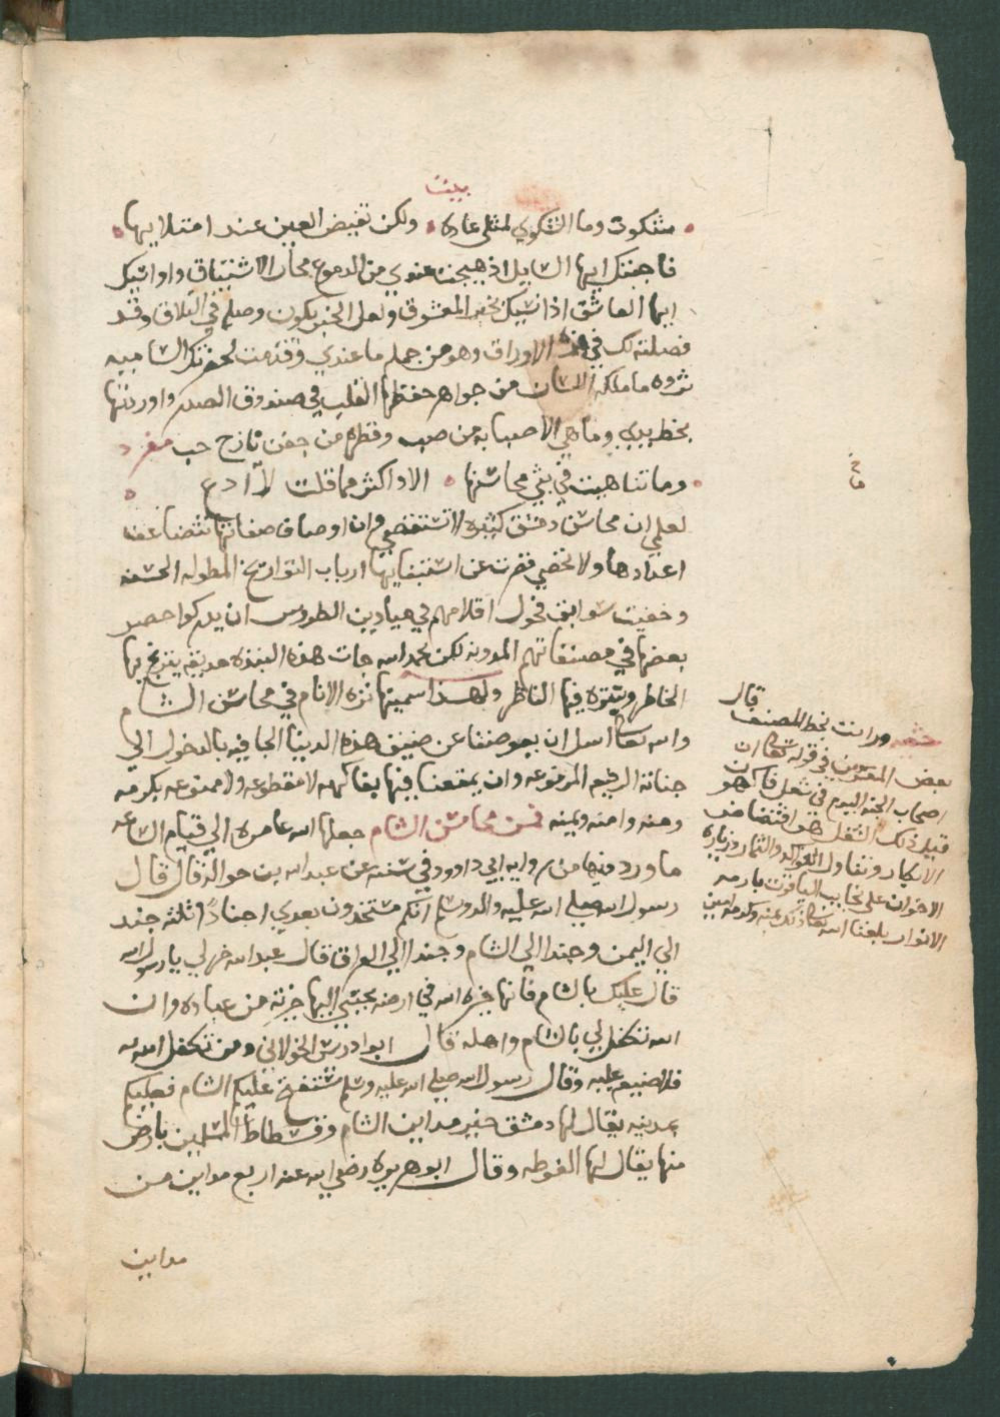 بيت
شكوت وما الشكوي لمثلي عاده ولكن تفيض العين عند امتلايها
فاجبتك ايها السايل اذ هيجت عندي من الدموع بحار الاشتياق واواسيك
ايها العاشق اذا نسيك بخبر المعشوق ولعل الخبر يكون وصلم في التلاق وقد
فصلته لك في هذه الاوراق وهو من جمله ما عندي وقدمت لحضرتك الساميه
ثروه ما ملكه اللسان من جواهر حفظها القلب في صندوق الصدر واوردتها
بخط يدي وما هي الا صبابه من صب وقطره من جفن نازح حب مفرد
وما تناهيت في بثي محاسنها الا واكثر مما قلت لا ادع
لعلي ان محاسن دمشق كثيره لا تستقصي وان اوصاف صفاتها تتضاعف
اعدادها ولا تحصي قصرت عن استيفايها ارباب التواريخ المطوله الحسنه
وخفيت سوابق فحول اقلامهم في ميادين الطروس ان يدركوا حصر
بعضها في مصنفاتهم المدونه لكن بحمد الله جات هذه النبذه حديقه يتنزه بها
الخاطر ويتنزه فيها الناظر ولهذا سميتها نزه الانام في محاسن الشام
والله تعالى اسل ان يعوضنا عن ضيق هذه الدنيا الجافيه بالدخول الي
جناته الرفيعه المرفوعه وان يمتعنا فيها بفاكهه لا مقطوعه ولا ممنوعه بكرمه
ومنه وامنه ويمنه فمن محاسن الشام جعلها الله عامره الي قيام الساعه
ما ورد فيها من روايه ابي داوود في سننه عن عبد الله بن حواله قال قال
رسول الله صلي الله عليه وسلم انكم ستجندون بعدي اجنادا ثلثه جند
الي اليمن وجندا الي الشام وجندا الي العراق قال عبد الله خر لي يا رسول الله
قال عليك بالشام فانها خيره الله في ارضه يجتبي اليها خيرته من عباده وان
الله تكفل لي بالشام واهله قال ابو ادريس الخولاني ومن تكفل الله به
فلا ضيعه عليه وقال رسول الله صلي الله عليه وسلم ستفتح عليكم الشام فعليكم
بمدينه يقال لها دمشق خير مداين الشام وفسطاط المسلمين بارض
منها يقال لها الغوطه وقال ابو هريره رضي الله عنه اربع مداين من
مداين
قال
ورايت بخط المصنف
بعض المفسرين في قوله تعالى ان
اصحاب الجنه اليوم في شغل فاكهون
قيل ذلك الشغل هو افتضاض
الابكار وتناول الفواكه والثمار وزياره
الاخوان على نجايب الياقوت بارمه
الانوار بلغنا الله تعالى ذلك بمنه وكرمه امين